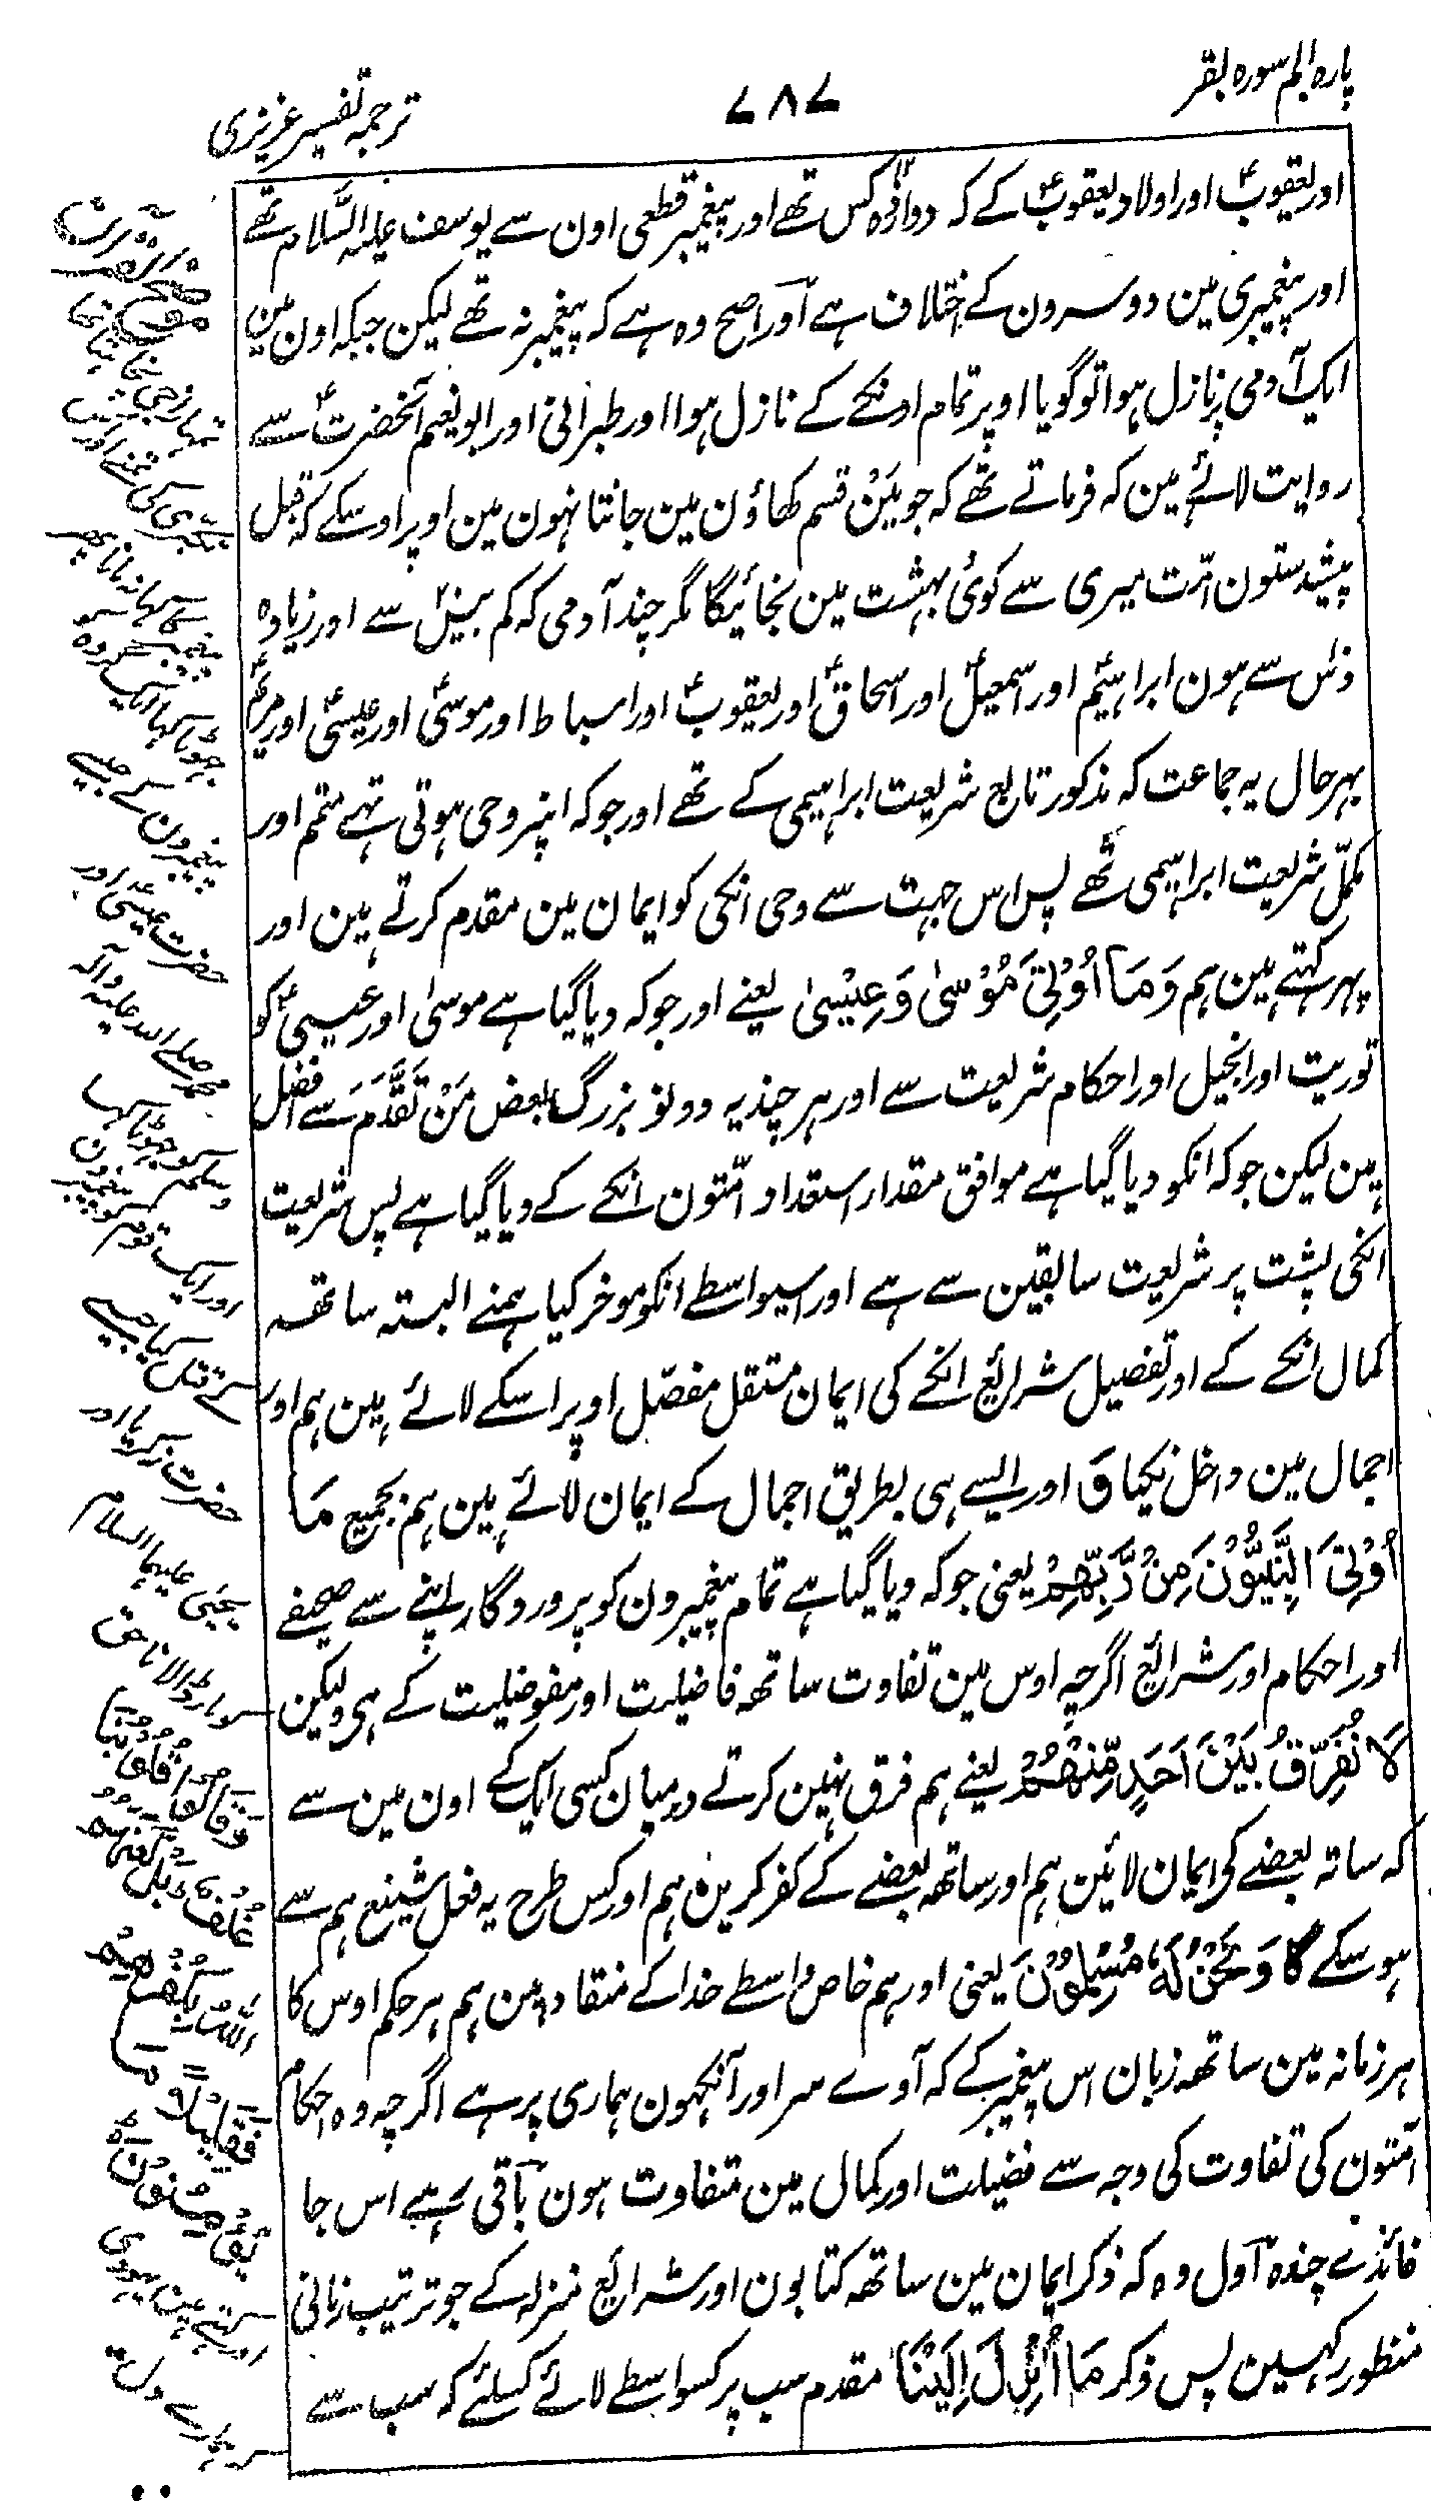 پارہ الم سورہ بقر
۷۸۷
ترجمہ تفسیر عزیزی
اور یعقوبؑ اور اولاد یعقوبؑ کے کہ دوازدہ کس تھے اور پیغمبر قطعی اون سے یوسف علیہ السّلام تھے
اور پیغمبری مین دوسرون کے اختلاف ہے اور اصح وہ ہے کہ پیغمبر نہ تھے لیکن جبکہ اون مین
ایک آدمی پر نازل ہوا تو گویا اوپر تمام اونکے کے نازل ہوا اور طبرانی اور ابونعیم آنحضرتؑ سے
روایت لائے ہین کہ فرماتے تھے کہ جو مَیْن قسم کھاؤن مین جانتا ہون مین اوپر اوسکے کہ قبل
پیشدستون امّت میری سے کوئی بہشت مین نجائیگا مگر چند آدمی کہ کم بیسؔ سے اور زیادہ
دسؔ سے ہون ابراہیمؑ اور اسمعیلؑ اور اسحاقؑ اور یعقوبؑ اور اسباط اور موسیٰؑ اور عیسیٰؑ اور مریمؑ
بہر حال یہ جماعت کہ مذکور تابع شریعت ابراہیمی کے تھے اور جو کہ اپنر وحی ہوتی تہے متمم اور
مکمّل شریعت ابراہیمی تھے پس اس جہت سے وحی انکی کو ایمان مین مقدم کرتے ہین اور
پہر کہتے ہین ہم وَمَآ اُوْتِیَ مُوْسٰی وَعِیْسٰی یعنے اور جو کہ دیا گیا ہے موسیٰ اور عیسیٰؑ کو
توریت اور انجیل اور احکام شریعت سے اور ہر چند یہ دونو بزرگ بعض مَنْ تَقَدَّمَ سے افضل
ہین لیکن جو کہ انکو دیا گیا ہے موافق مقدار استعداد امّتون انکے کے دیا گیا ہے پس شریعت
انکی پشت پر شریعت سابقین سے ہے اور اسیواسطے انکو موخر کیا ہمنے البتہ ساتھہ
کمال انکے کے اور تفصیل شرائع انکے کی ایمان مستقل مفصّل اوپر اسکے لائے ہین ہم اور
اجمال مین داخل نکیا وَ اور ایسے ہی بطریق اجمال کے ایمان لائے ہین ہم بجمیع مَا
اُوْتِیَ النَّبِیُّوْنَ مِنْ رَّبِّهِمْ یعنی جو کہ دیا گیا ہے تمام پیغمبرون کو پروردگار اپنے سے صحیفے
اور احکام اور شرائع اگرچہ اوس مین تفاوت ساتھہ فاضلیت اور مفوضلیت کے ہی ولیکن
لَا نُفَرِّقُ بَیْنَ اَحَدٍ مِّنْهُمْ یعنے ہم فرق نہین کرتے درمیان کسی ایک کے اون مین سے
کہ ساتہ بعضے کی ایمان لائین ہم اور ساتھہ بعضے کے کفر کرین ہم اور کس طرح یہ فعل شنیع ہم سے
ہوسکے گا وَنَحْنُ لَهٗ مُسْلِمُوْنَ یعنی اور ہم خاص واسطے خدا کے منقاد ہین ہم ہر حکم اوس کا
ہر زمانہ مین ساتھہ زبان اس پیغمبر کے کہ آوے سر اور آنکہون ہماری پر ہے اگرچہ وہ احکام
امّتون کی تفاوت کی وجہ سے فضیلت اور کمال مین متفاوت ہون باقی رہے اس جا
فائدے چندہ اول وہ کہ ذکر ایمان مین ساتھہ کتابون اور شرائع منزلہ کے جو ترتیب زمانی
منظور رکہین پس ذکر مَا اُنْزِلَ اِلَیْنَا مقدم سب پر کسواسطے لائے کسلئے کہ سب سے
تمہارا رجی نچاہتا تھا
تکبر ہی کی تمنے اور بعض
پیغمبر کا کہا نہ مانا پھر
جھوٹا کہا ایک گروہ
پیغمبرون کے جیسے
حضرت عیسیٰؑ اور
محمد صلے اللہ علیہ وآلہ
وسلم کو جھوٹا کہا
اور ایک قوم پیغمبرون
کے قتل کیا جیسے
حضرت زکریا اور
یحییٰ علیہما السلام
کو مار ڈالا ناحق
وَقَالُوْا قُلُوْبُنَا
غُلْفٌ بَلْ لَّعَنَهُمُ
اللّٰهُ بِکُفْرِهِمْ
فَقَلِیْلًا مَّا
یُؤْمِنُوْنَ
اور کہتے ہین یہودی
کہ ہمارے دل